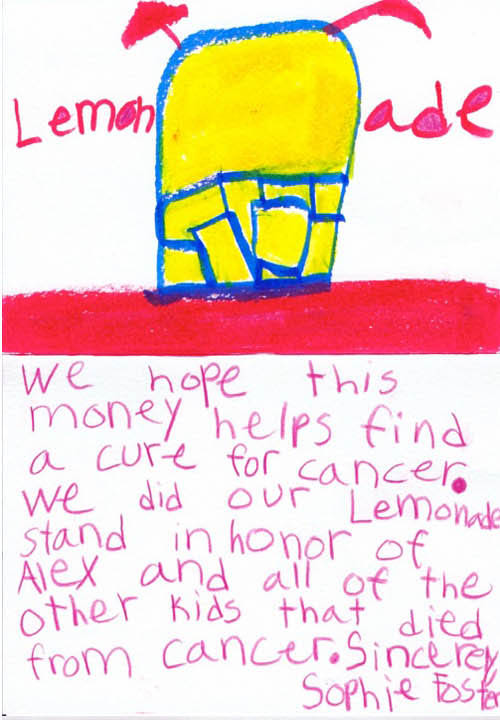 Lemonade
We hope this
money helps find
a cure for cancer.
We did our Lemonade
stand in honor of
Alex and all of the
other kids that died
from cancer. Sincerely
Sophie Foster